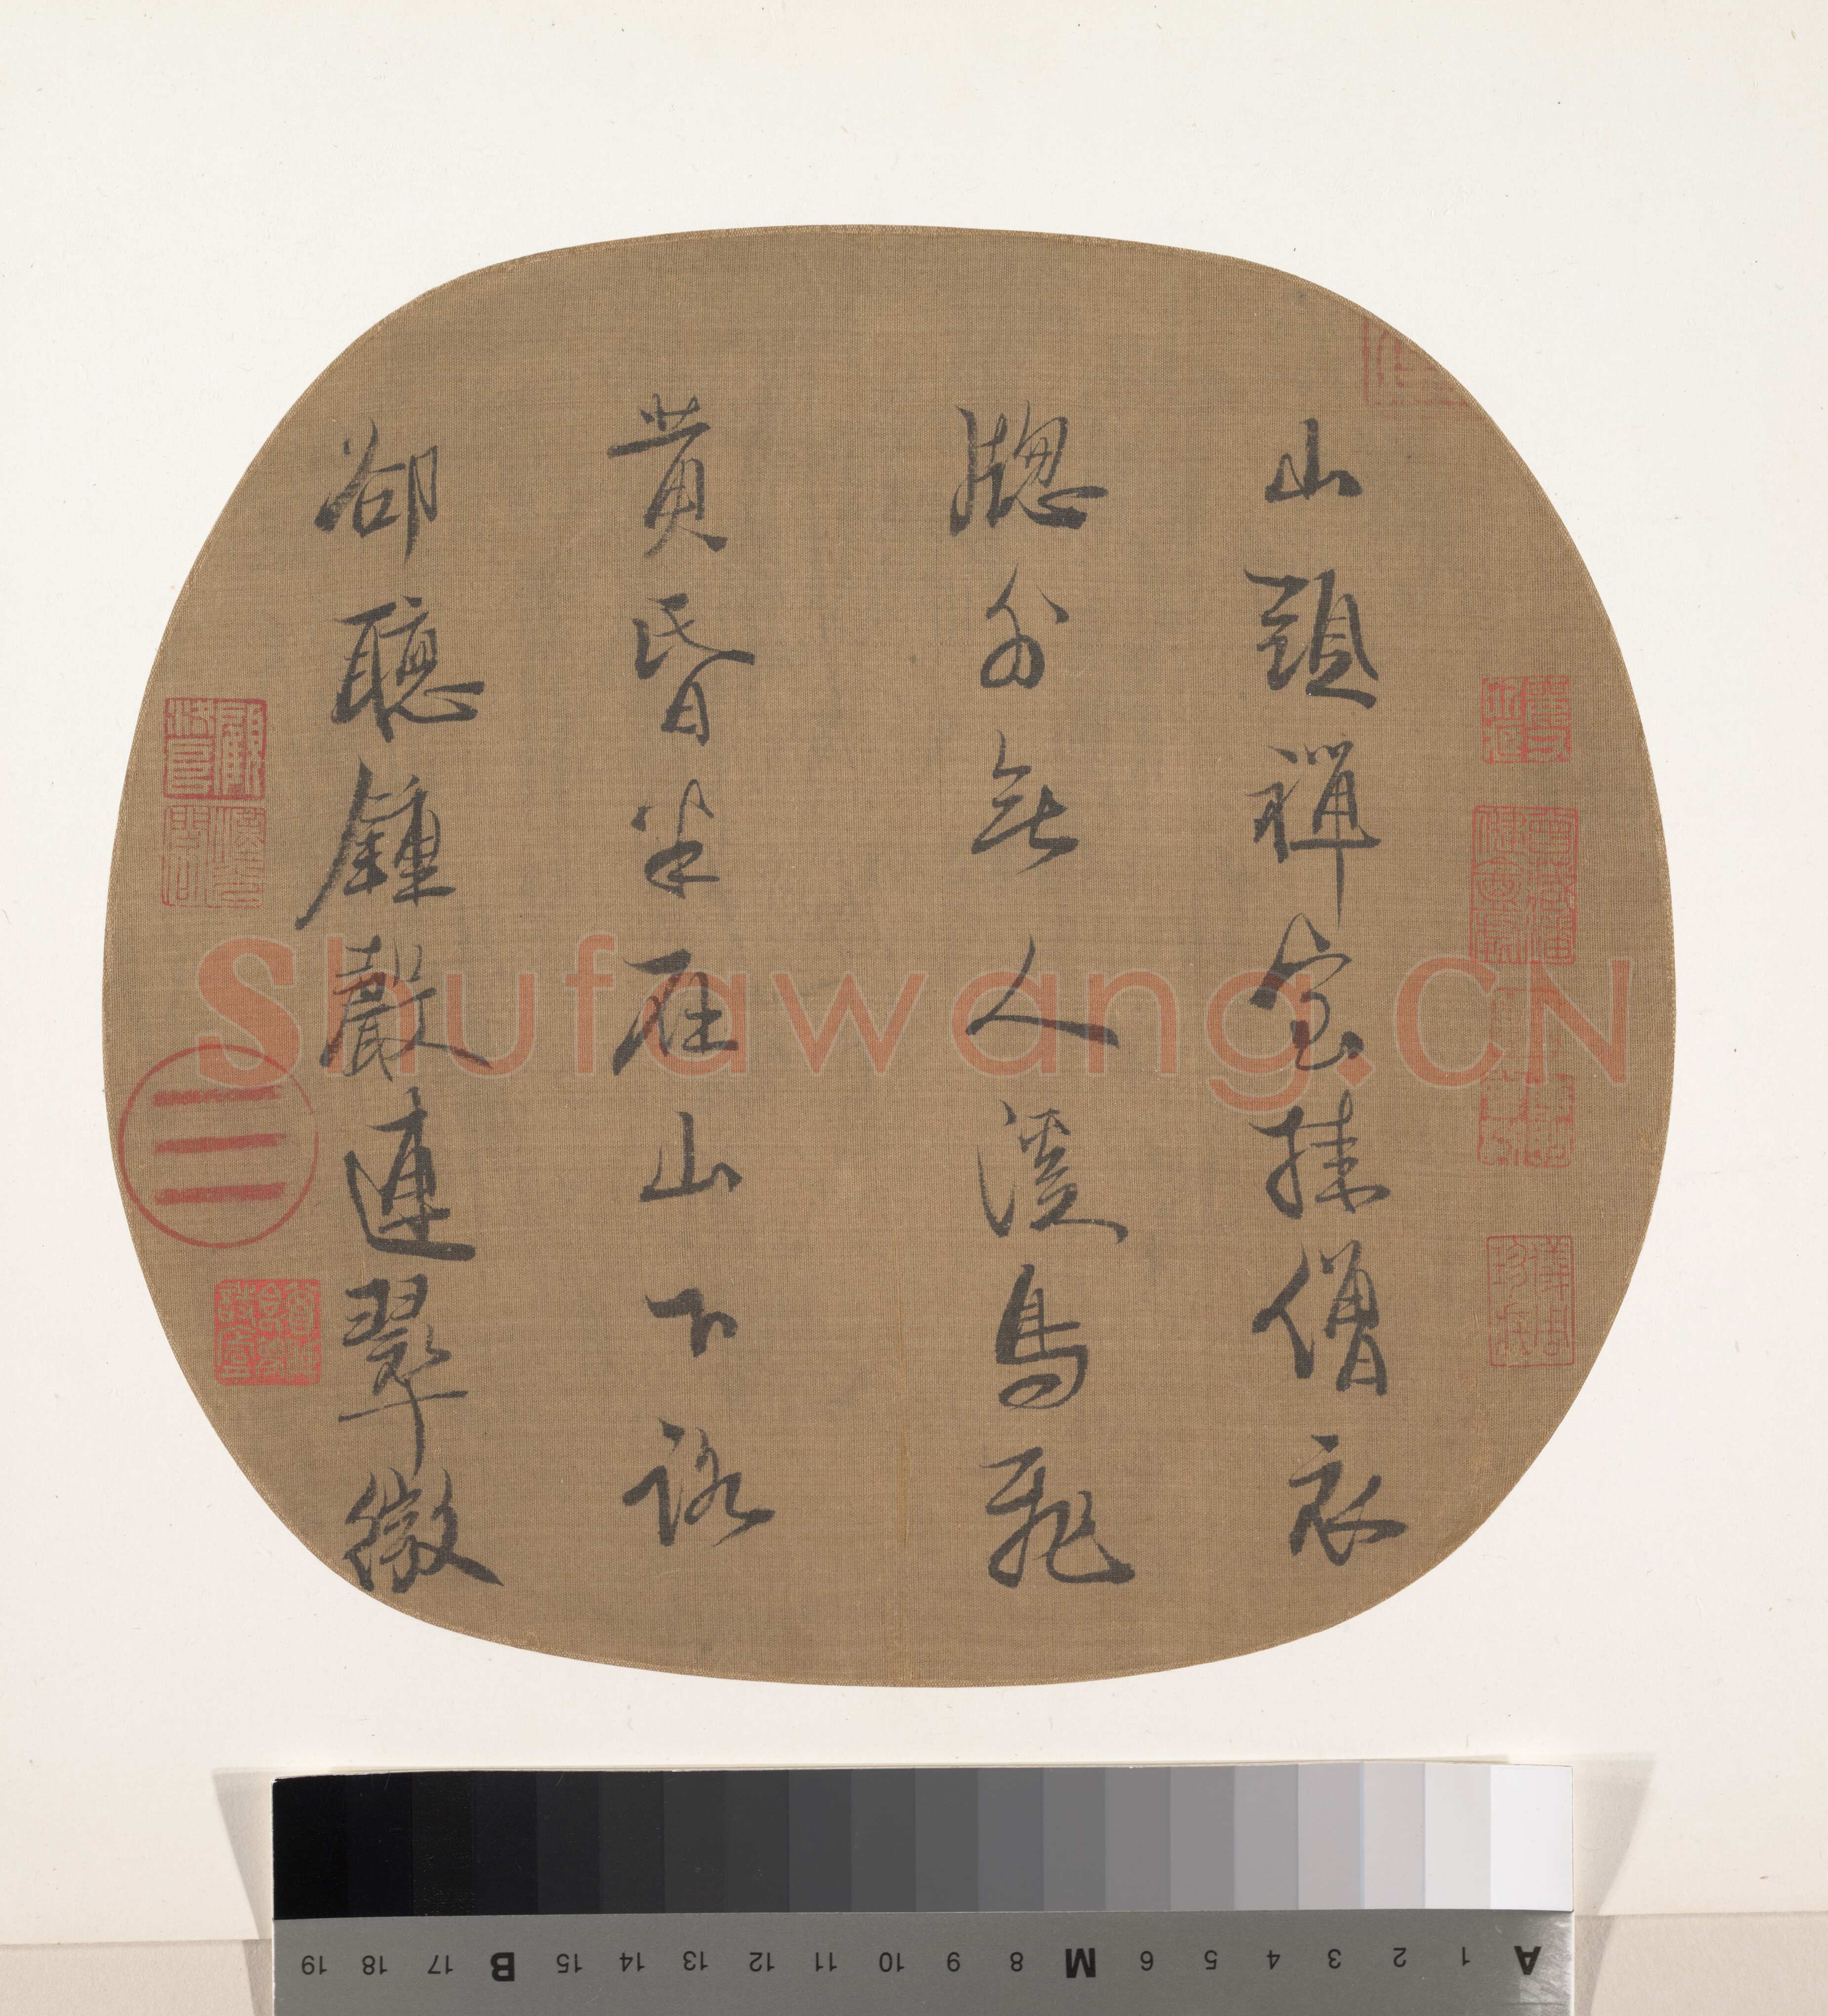 山頭禪室挂僧衣
牎外無人溪鳥飛
黄昏半在山下路
卻聽鍾聲連翠微
Shufawang.CN
A 1 2 3 4 5 6 M 8 9 10 11 12 13 14 15 B 17 18 19